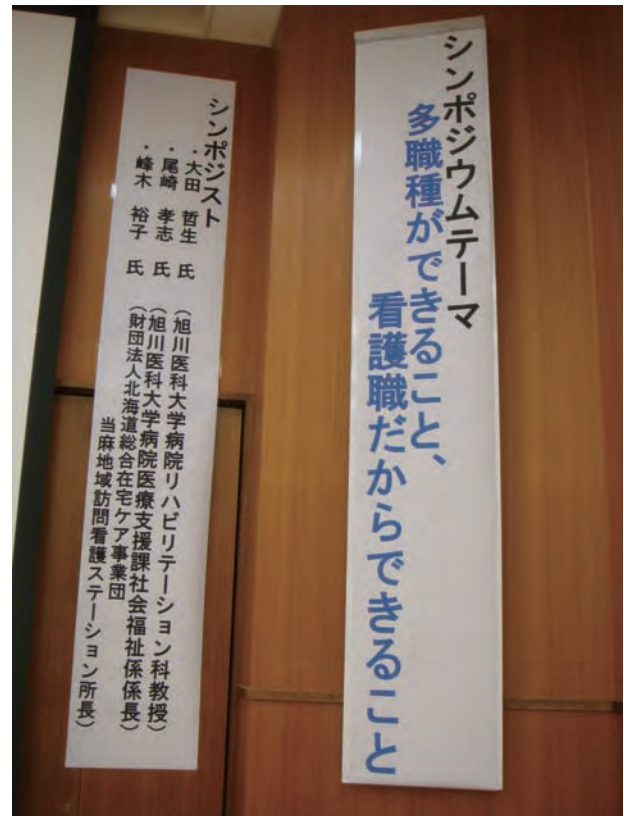 シンポジウムテーマ
多職種ができること、
看護職だからできること
シンポジスト
・大田 哲生 氏 （旭川医科大学病院リハビリテーション科教授）
・尾崎 孝志 氏 （旭川医科大学病院医療支援課社会福祉係係長）
・峰木 裕子 氏 （財団法人北海道総合在宅ケア事業団
当麻地域訪問看護ステーション所長）